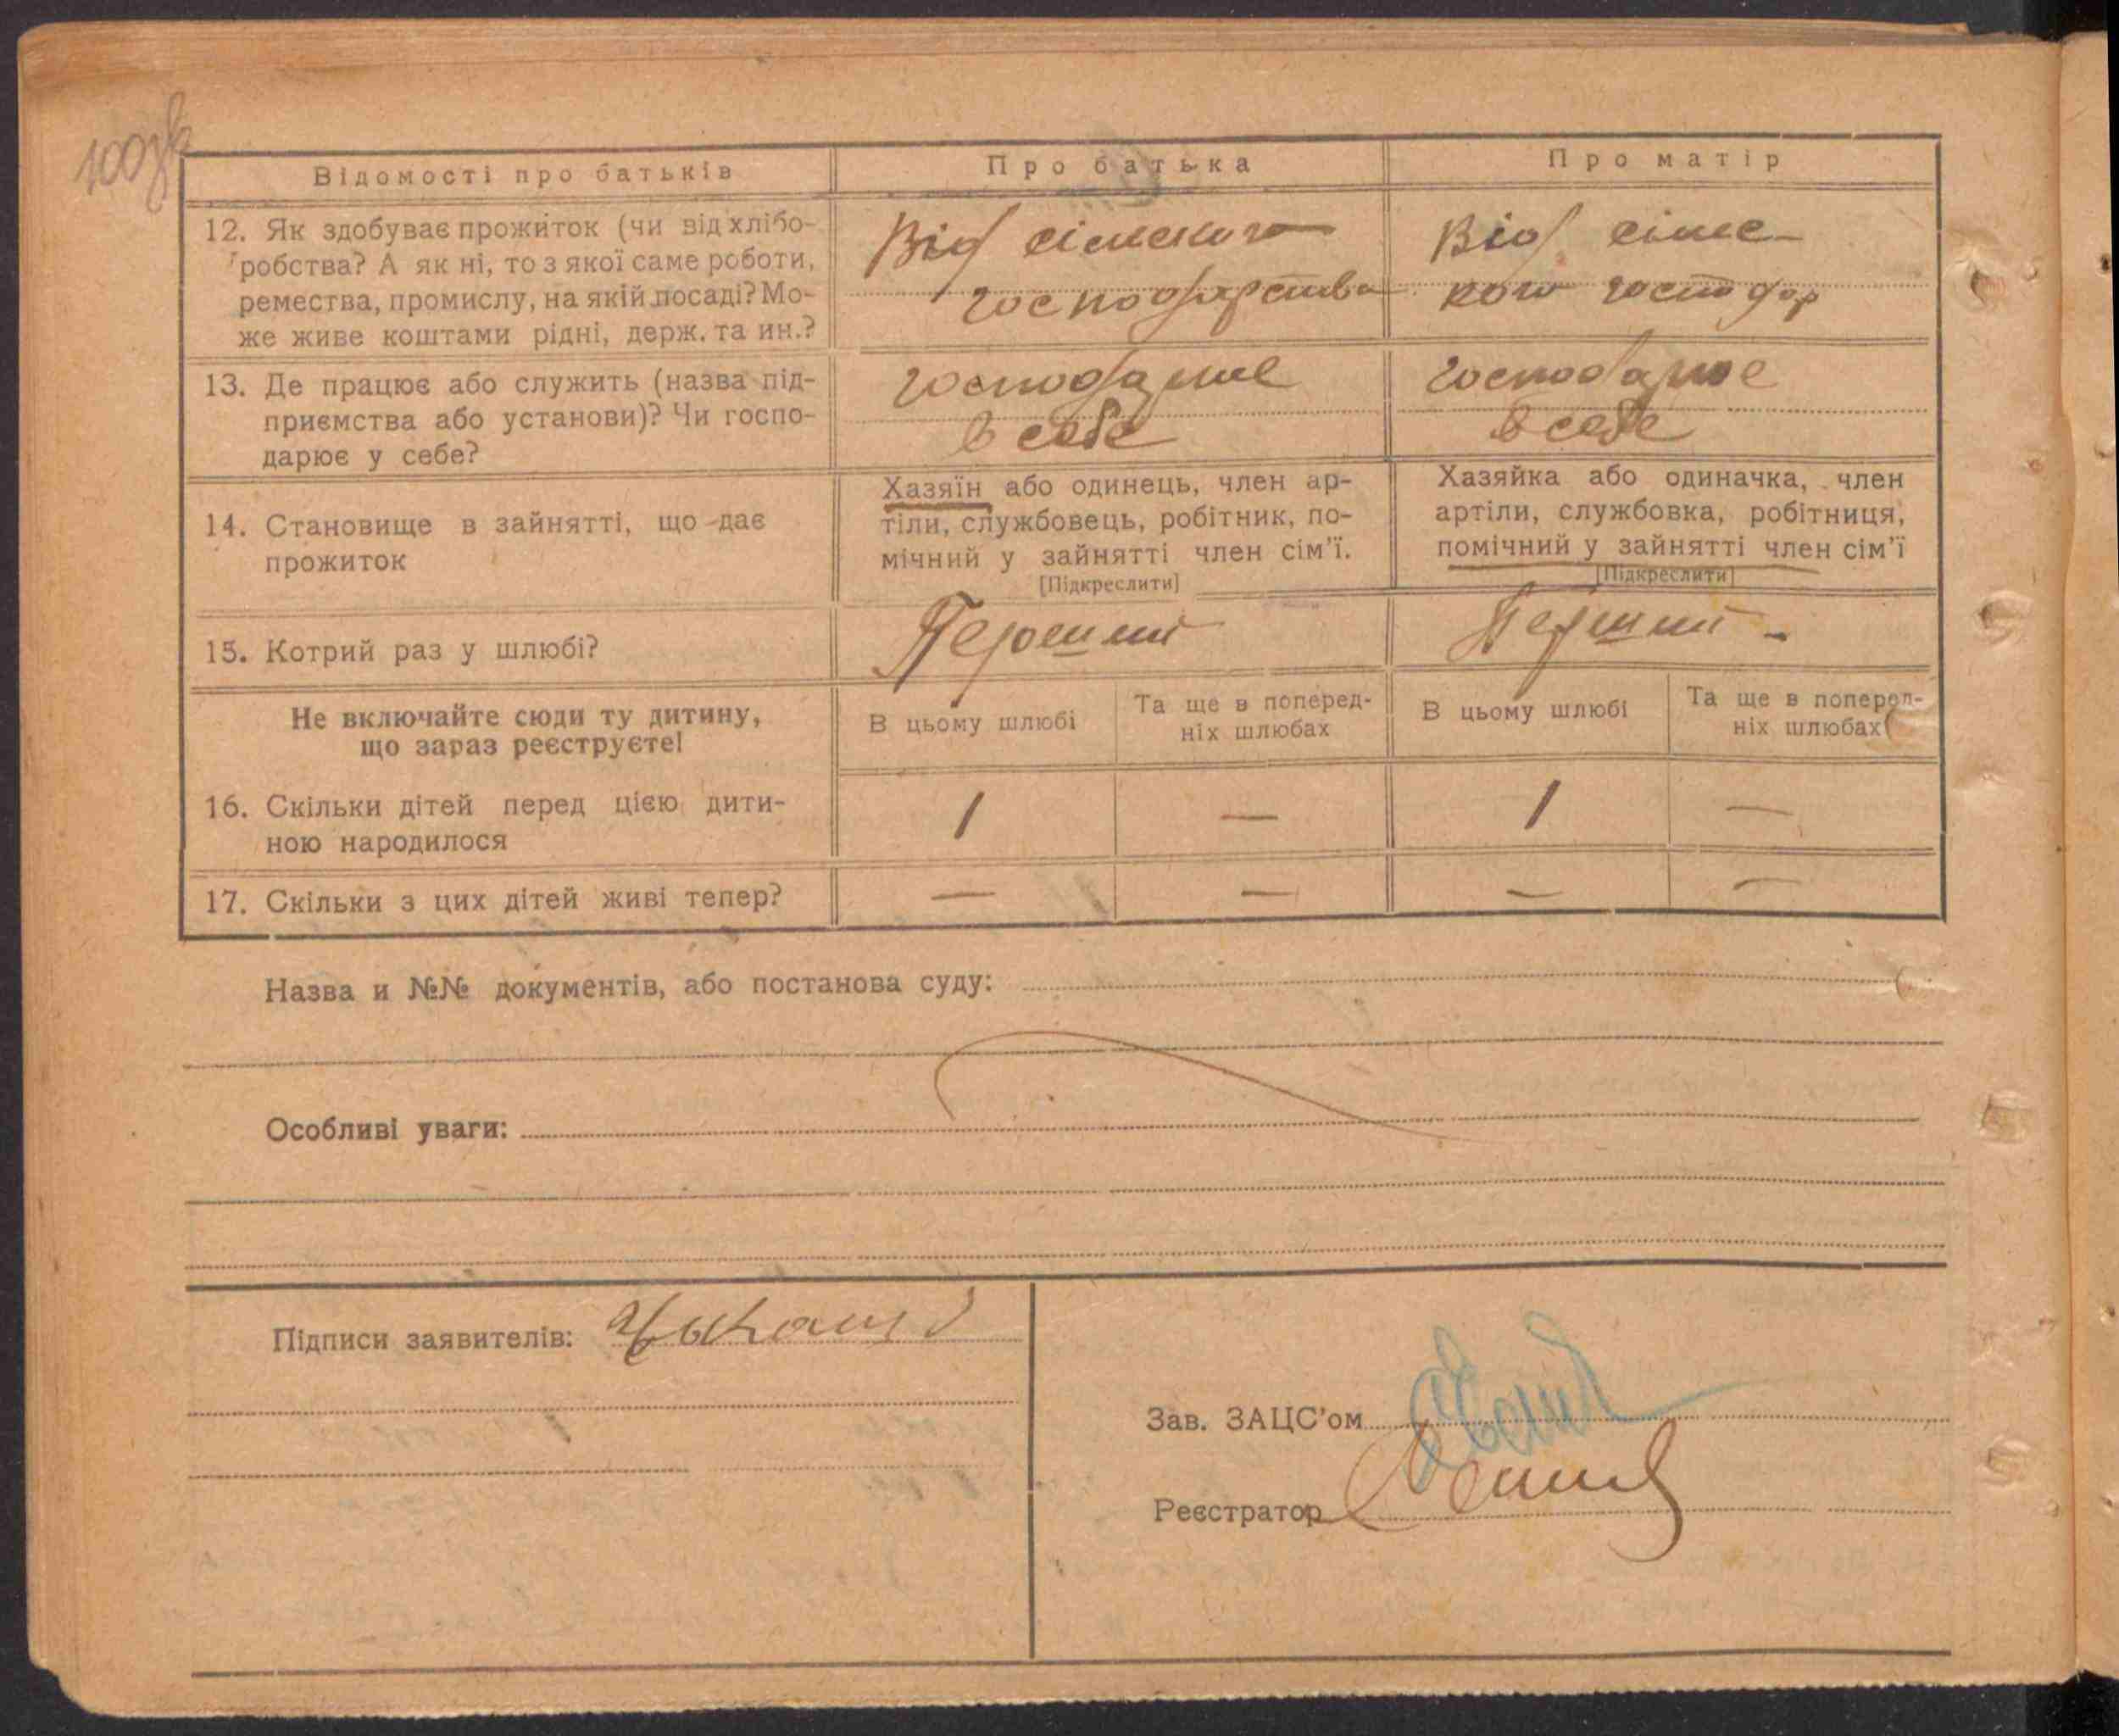 100зв
Відомості про батьків
Про батька
Про матір
12. Як здобуває прожиток (чи від хлібо-
робства? А як ні, то з якої саме роботи,
ремества, промислу, на якій посаді? Мо-
же живе коштами рідні, держ. та ин.?
Від сільського
господарства
Від сілс-
кого господар
13. Де працює або служить (назва під-
приємства або установи)? Чи госпо-
дарює у себе?
господарює
в себе
господарює
в себе
14. Становище в зайнятті, що дає
прожиток
Хазяїн або одинець, член ар-
тіли, службовець, робітник, по-
мічний у зайнятті член сім'ї.
[Підкреслити]
Хазяйка або одиначка, член
артіли, службовка, робітниця,
помічний у зайнятті член сім'ї
[Підкреслити]
15. Котрий раз у шлюбі?
Перший
Перший -
Не включайте сюди ту дитину,
що зараз реєструєте!
В цьому шлюбі
Та ще в поперед-
ніх шлюбах
В цьому шлюбі
Та ще в поперед-
ніх шлюбах
16. Скільки дітей перед цією дити-
ною народилося
1 — 1 —
17. Скільки з цих дітей живі тепер?
— — — —
Назва и №№ документів, або постанова суду:
Особливі уваги:
Підписи заявителів:
Зав. ЗАЦС'ом
Реєстратор